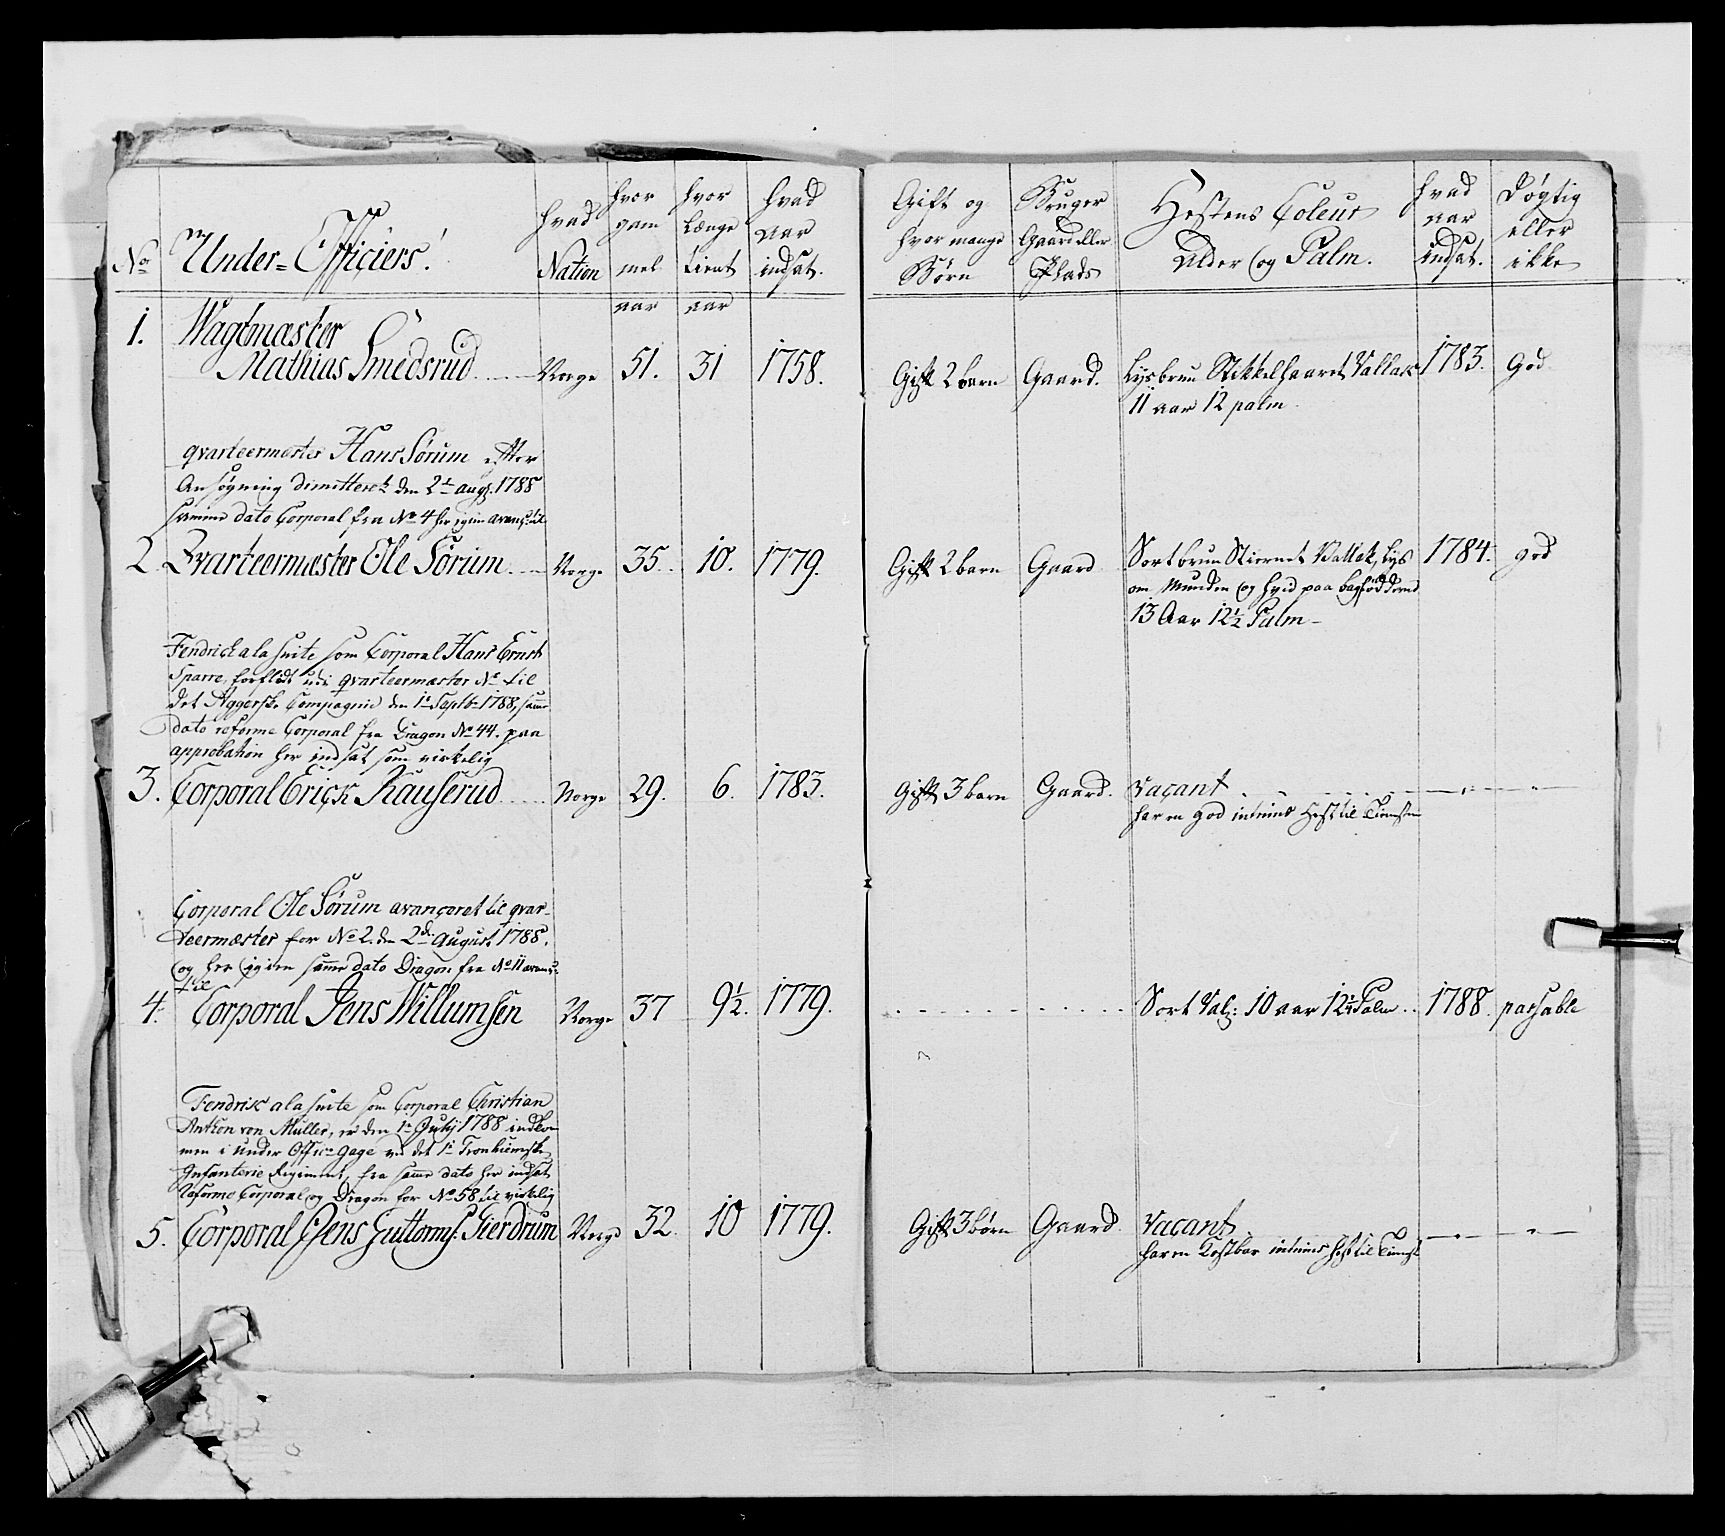 No
Under=Officiers!
hvad Nation
hvor gam mel aar
hvor længe tient aar
hvad aar indsat.
Gift og hvor mange Børn
Bruger Gaard eller Plads
Hestens Coleur Alder og Palm.
hvad aar indsat.
Døgtig eller ikke
1. Wagtmæster
Mathias Smedsrud Norge 51. 31 1758. Gift 2 barn Gaard. Lysbrun Stikkelhaaret Vallak 1783. God
11 aar 12 palm
qvarteermester Hans Sørum efter
Ansøgning dimitteret den 2t augs. 1788
samme dato Corporal fra No 4 her igien
2 Qvarteermæster Ole Sørum Norge 35. 10. 1779. Gift 2 barn Gaard Sortbrun Stiernet Vallak, lys 1784. god
om Munden og hvid paa bagfødderne
13 Aar 12½ Palm
Fendrick ala suite som Corporal Hans Ernst
Sparre, forflödt udi qvarteermæster No til
det Aggerske Compagnie den 1t Septb 1788, samme
dato reforme Corporal fra Dragon No 44. paa
approbation her indsat som virkelig
3. Corporal Erick Kauserud Norge 29. 6. 1783. Gift 3 barn Gaard. Vacant
har en god intrims Hest til Tienesten
Corporal Ole Sørum avanceret til qvar-
teermæster for No 2. den 2d August 1788.
og her igien samme dato Dragon fra No 11
til
4. Corporal Jens Willumsen Norge 37 9½. 1779. Sort Val: 10 aar 12½ Palm 1788. passable
Fendrik ala suite som Corporal Christian
Anthon von Müller, er den 1t July 1788 indkom
men i Under Offic: gage ved det 1t Tronhiemske
Infanterie Regiment, fra samme dato her indsat
Reforme Corporal og Dragon for No 58 til virkelig
5. Corporal Jens Guttorms: Gierdrum Norge 32. 10 1779. Gift 3 børn Gaard Vacant
har en Kostbar intrims hest til Tienest